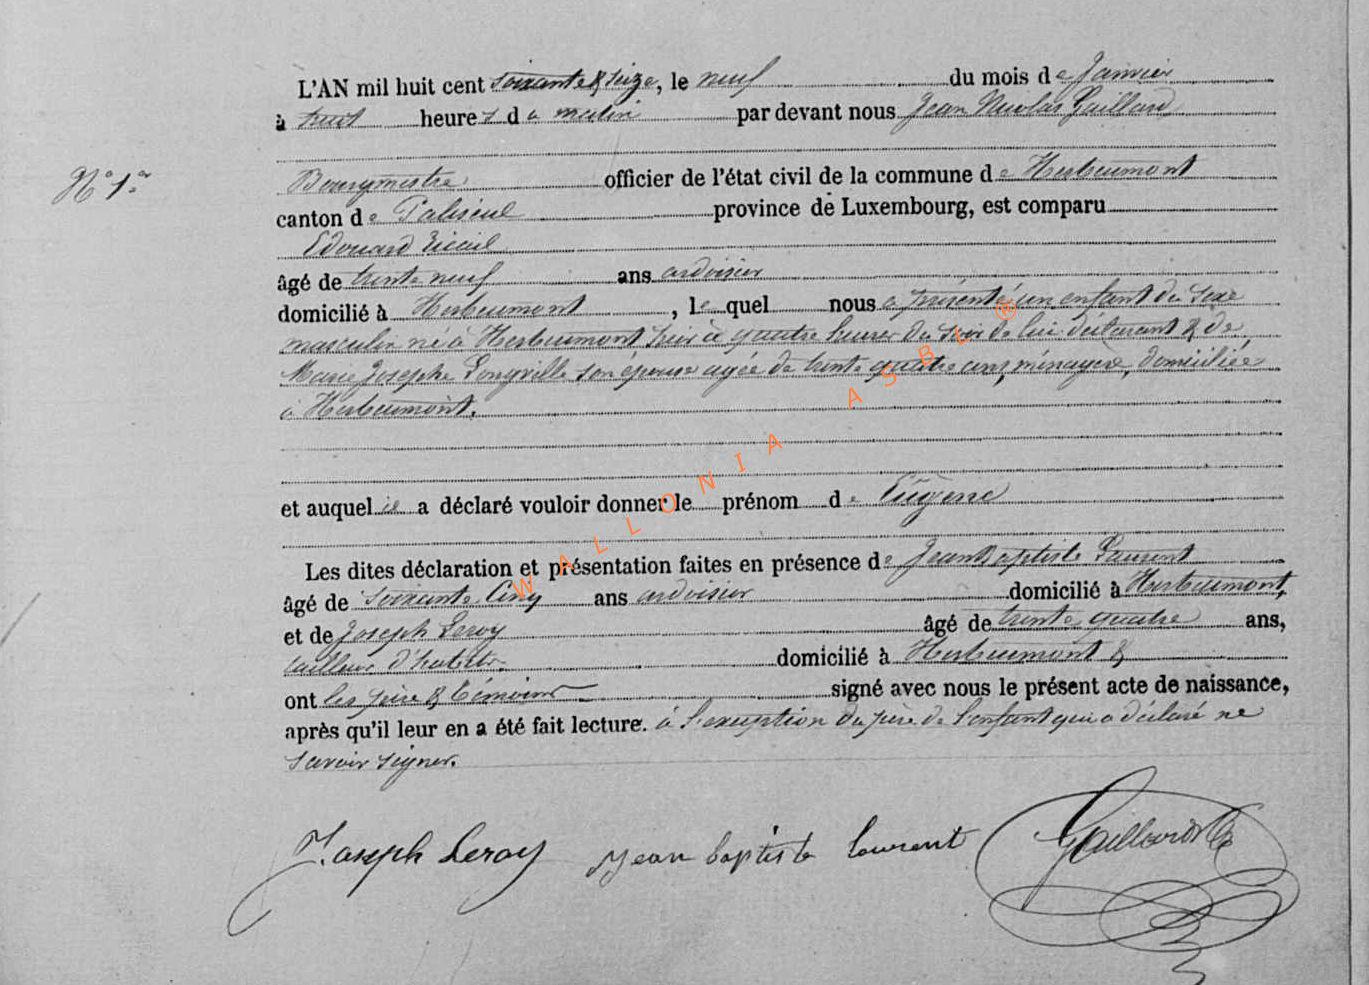 L'AN mil huit cent soixante & seize, le neuf du mois de Janvier
à huit heures du matin par devant nous Jean Nicolas Gaillard
N° 1er
Bourgmestre officier de l'état civil de la commune de Herbeumont
canton de Paliseul province de Luxembourg, est comparu
Edouard
âgé de trente neuf ans ardoisier
domicilié à Herbeumont, lequel nous a présenté un enfant du sexe
masculin né à Herbeumont hier à quatre heures du soir de lui déclarant & de
Marie Josephe Pongville son épouse agée de trente quatre ans, ménagère, domiciliée
à Herbeumont.
et auquel il a déclaré vouloir donner le prénom de Eugène
Les dites déclaration et présentation faites en présence de Jean Baptiste Laurent
âgé de soixante cinq ans ardoisier domicilié à Herbeumont,
et de Joseph Leroy âgé de trente quatre ans,
tailleur d'habits domicilié à Herbeumont &
ont les père & témoins signé avec nous le présent acte de naissance,
après qu'il leur en a été fait lecture. à l'exception du père de l'enfant qui a déclaré ne
savoir signer.
Joseph Leroy Jean baptiste laurent Gaillard
WALLONIA ASBL ®